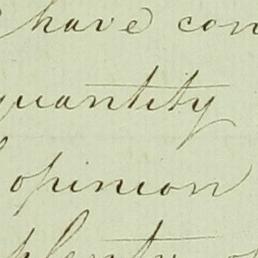 have con
quantity
opinion
plenty o